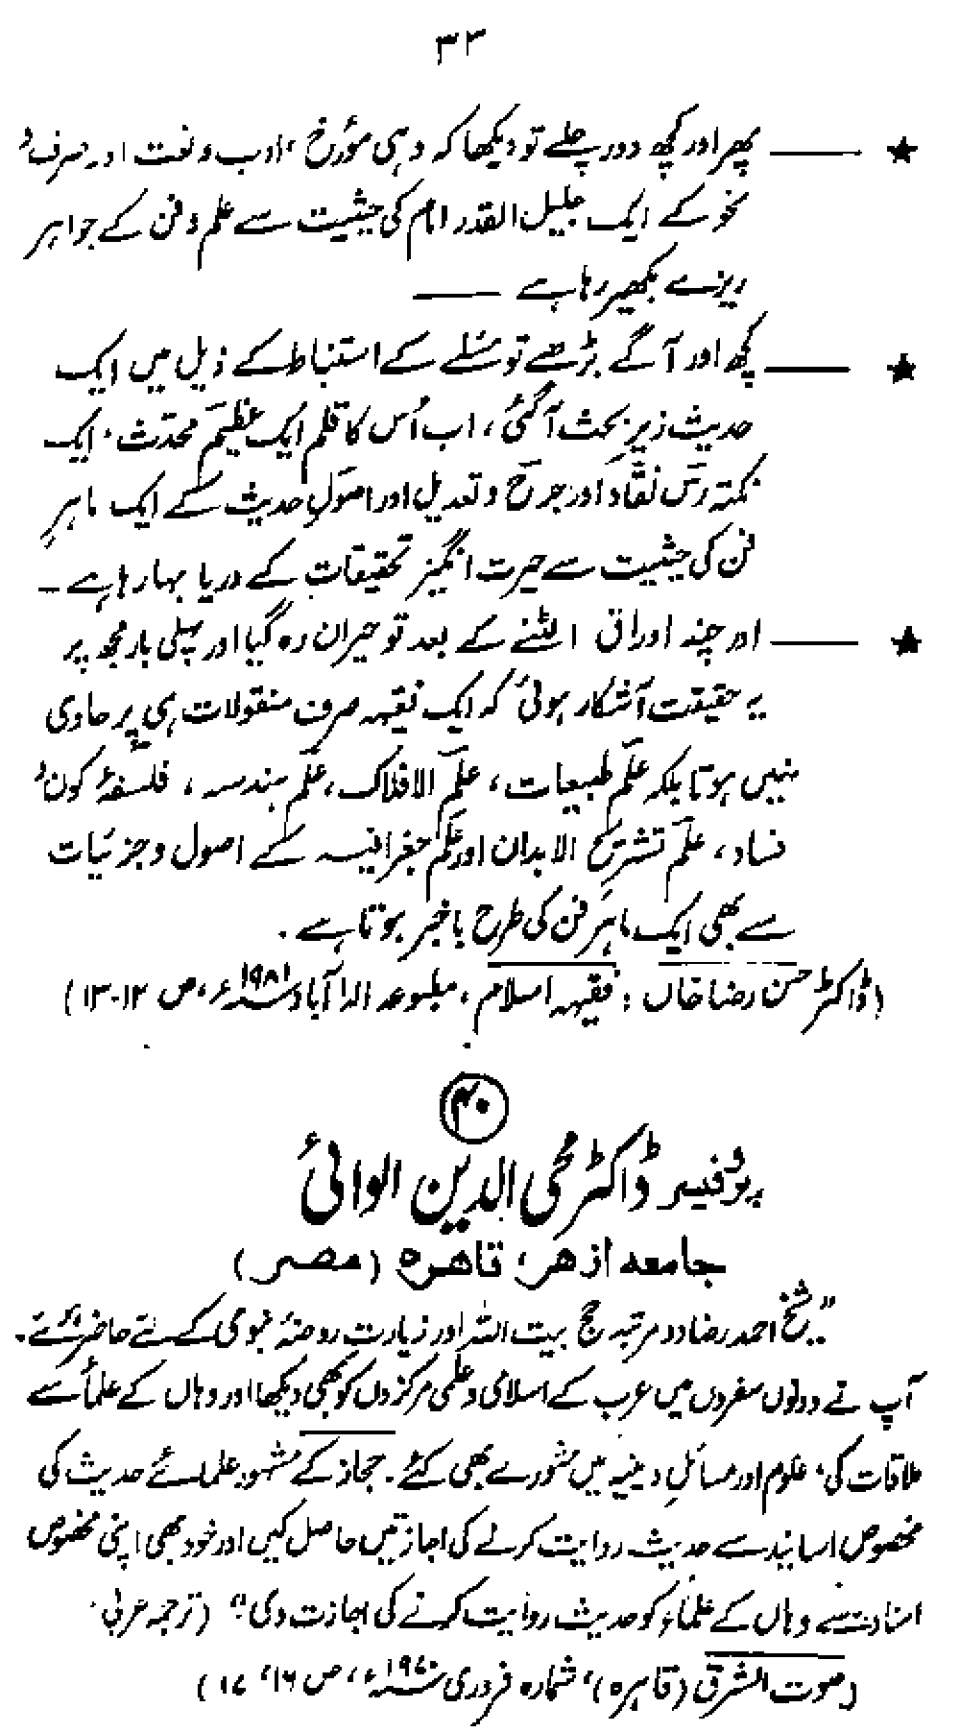 ۳۳
★ —— پھر اور کچھ دور چلے تو دیکھا کہ وہی مؤرخ، ادب و لغت اور صرف و
نحو کے ایک جلیل القدر امام کی حیثیت سے علم و فن کے جواہر
ریزے بکھیر رہا ہے ——
★ —— کچھ اور آگے بڑھے تو مسٔلے کے استنباط کے ذیل میں ایک
حدیث زیرِ بحث آگئی، اب اُس کا قلم ایک عظیم محدّث، ایک
نکتہ رس نقّاد اور جرح و تعدیل اور اصولِ حدیث کے ایک ماہرِ
فن کی حیثیت سے حیرت انگیز تحقیقات کے دریا بہا رہا ہے۔
★ —— اور چند اوراق الٹنے کے بعد تو حیران رہ گیا اور پہلی بار مجھ پر
یہ حقیقت آشکار ہوئی کہ ایک فقیہہ صرف منقولات ہی پر حاوی
نہیں ہوتا بلکہ علم طبیعات، علم الافلاک، علم ہندسہ، فلسفۂ کون و
فساد، علم تشریح الابدان اور علم جغرافیہ کے اصول و جزئیات
سے بھی ایک ماہر فن کی طرح باخبر ہوتا ہے۔
(ڈاکٹر حسن رضا خاں : فقیہہ اسلام، مطبوعہ الہ آباد ۱۹۸۱ء، ص ۱۲۔۱۳)
۴۰
پروفیسر ڈاکٹر محی الدین الوائی
جامعہ ازھر، قاھرہ (مصر)
”شیخ احمد رضا دو مرتبہ حج بیت اللہ اور زیارت روضۂ نبوی کے لئے حاضر ہوئے۔
آپ نے دونوں سفروں میں عرب کے اسلامی و علمی مرکزوں کو بھی دیکھا اور وہاں کے علماُ سے
ملاقات کی، علوم اور مسائلِ دینیہ میں مشورے بھی کئے۔ حجاز کے مشہور علمائے حدیث کی
مخصوص اسانید سے حدیث روایت کرنے کی اجازتیں حاصل کیں اور خود بھی اپنی مخصوص
اسناد سے وہاں کے علماء کو حدیث روایت کرنے کی اجازت دی“ (ترجمہ عربی
(صوت الشرق (قاہرہ)، شمارہ فروری ۱۹۷۰ء، ص ۱۶، ۱۷)